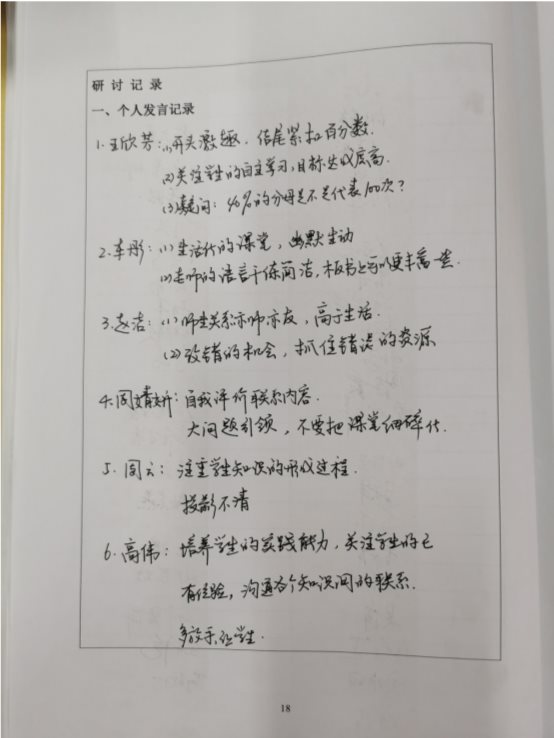 研讨记录
一、个人发言记录
1.王欣芳:(1)开头激趣,结尾紧扣百分数.
(2)关注学生的自主学习,目标达成度高.
(3)疑问:40%的分母是不是代表100次?
2.车彤:(1)生活化的课堂,幽默生动
(2)老师的语言干练简洁,板书上可以更丰富一些.
3.赵洁:(1)师生关系亦师亦友,高于生活.
(2)致错的机会,抓住错误的资源
4.周婧妍:自我评价联系内容.
大问题引领,不要把课堂细碎化.
5.周云:注重学生知识的形成过程.
投影不清
6.高伟:培养学生的实践能力,关注学生的已
有经验,沟通各个知识间的联系.
多放手让学生.
18